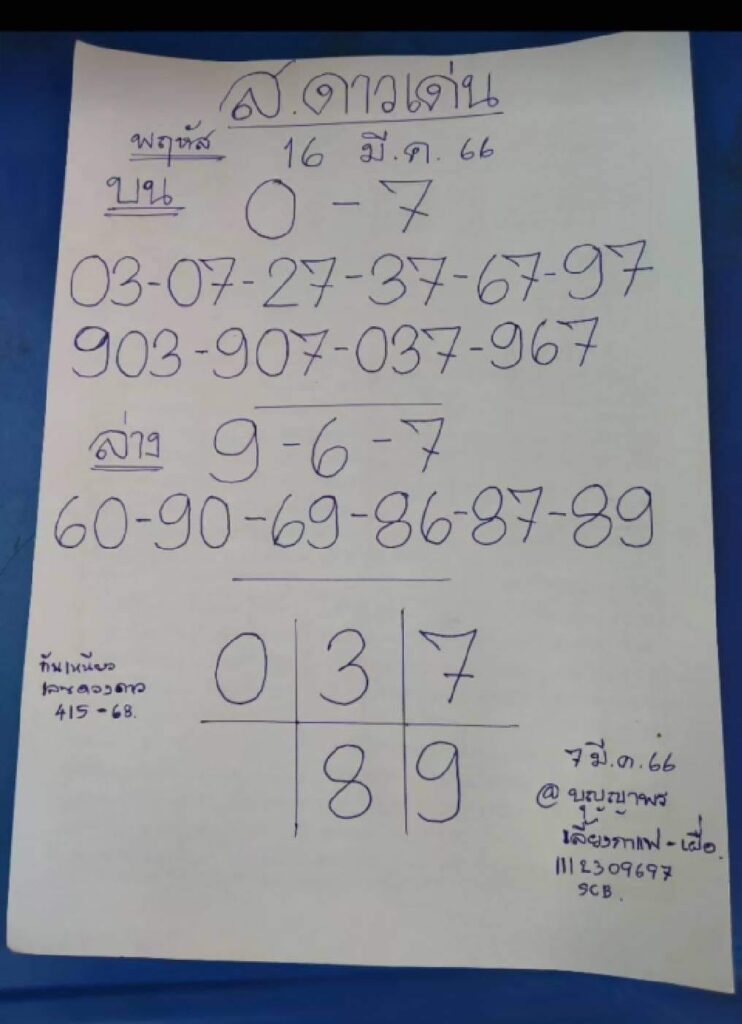 ส.ดาวเด่น
พฤหัส 16 มี.ค. 66
บน 0 - 7
03-07-27-37-67-97
903-907-037-967
ล่าง 9-6-7
60-90-69-86-87-89
0 3 7
8 9
กันเหนียว
415-68.
7 มี.ค.66
@ บุญญาพร
เลี้ยงกาแฟ -
1112309697
SCB.